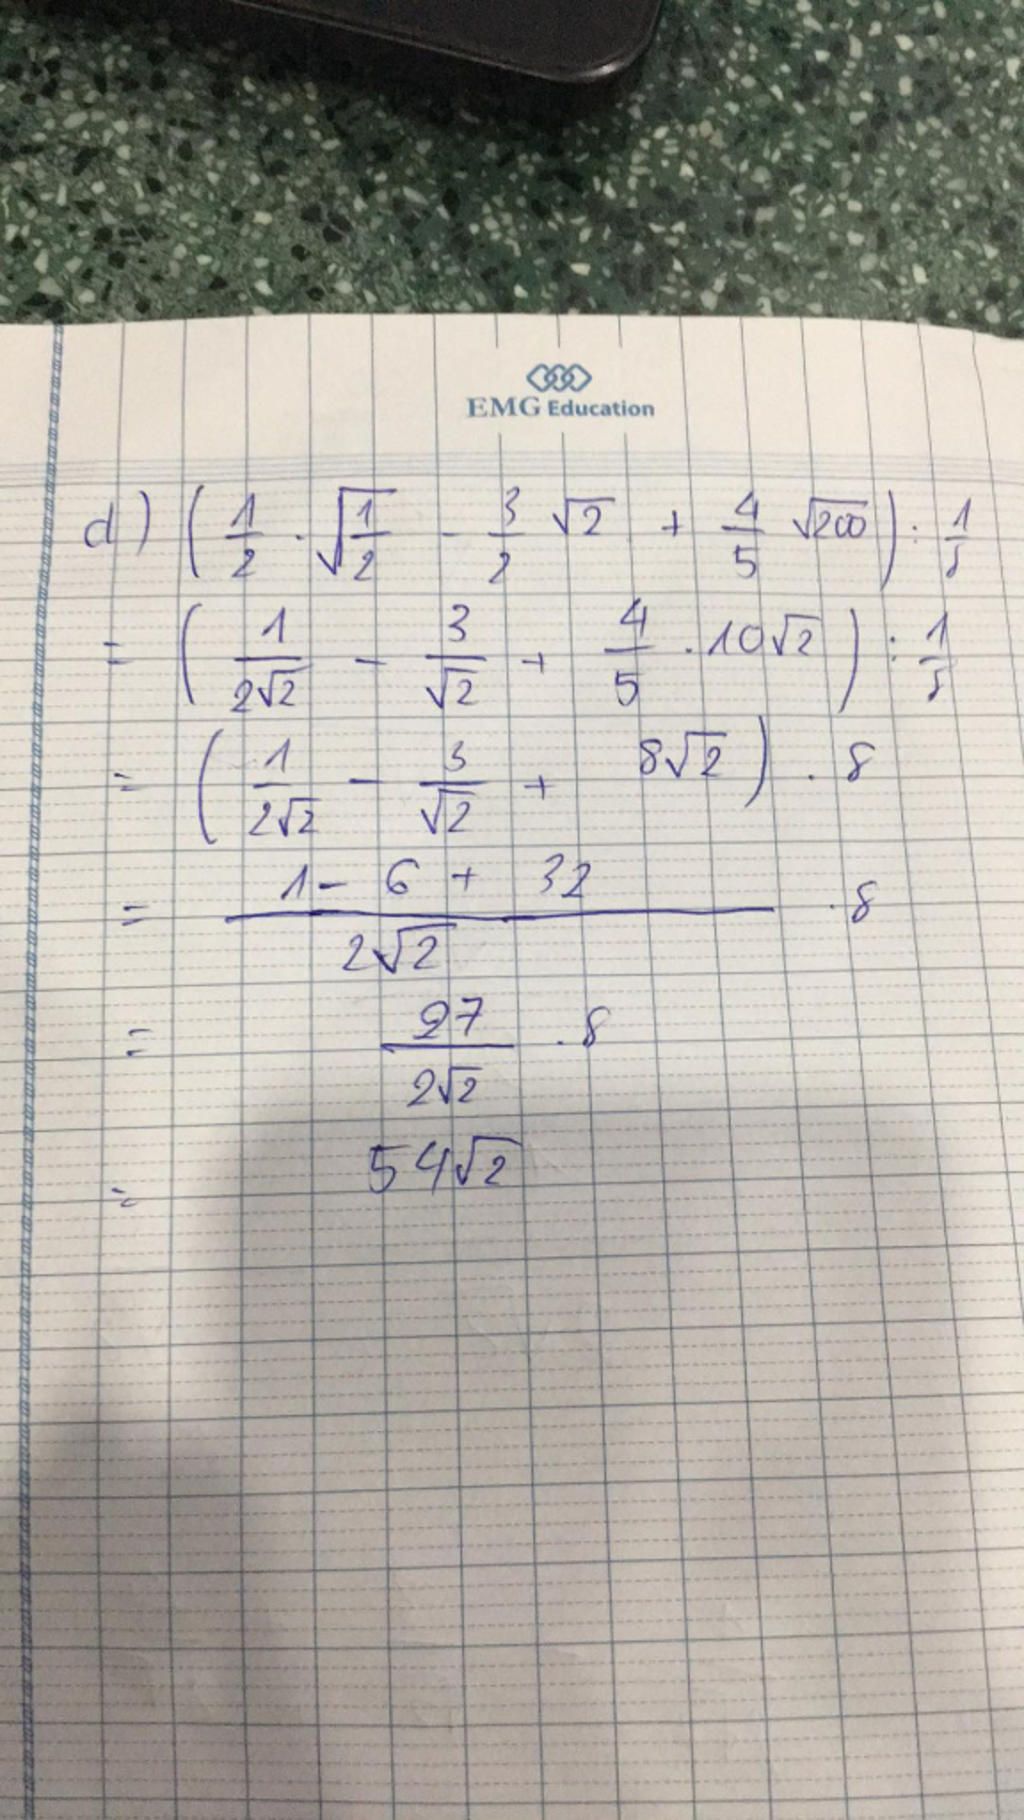 EMG Education
d) (1/2 . √(1/2) - 3/2 √2 + 4/5 √200) : 1/8
= (1/(2√2) - 3/√2 + 4/5 . 10√2) : 1/8
= (1/(2√2) - 3/√2 + 8√2) . 8
= (1 - 6 + 32)/(2√2) . 8
= 27/(2√2) . 8
= 54√2